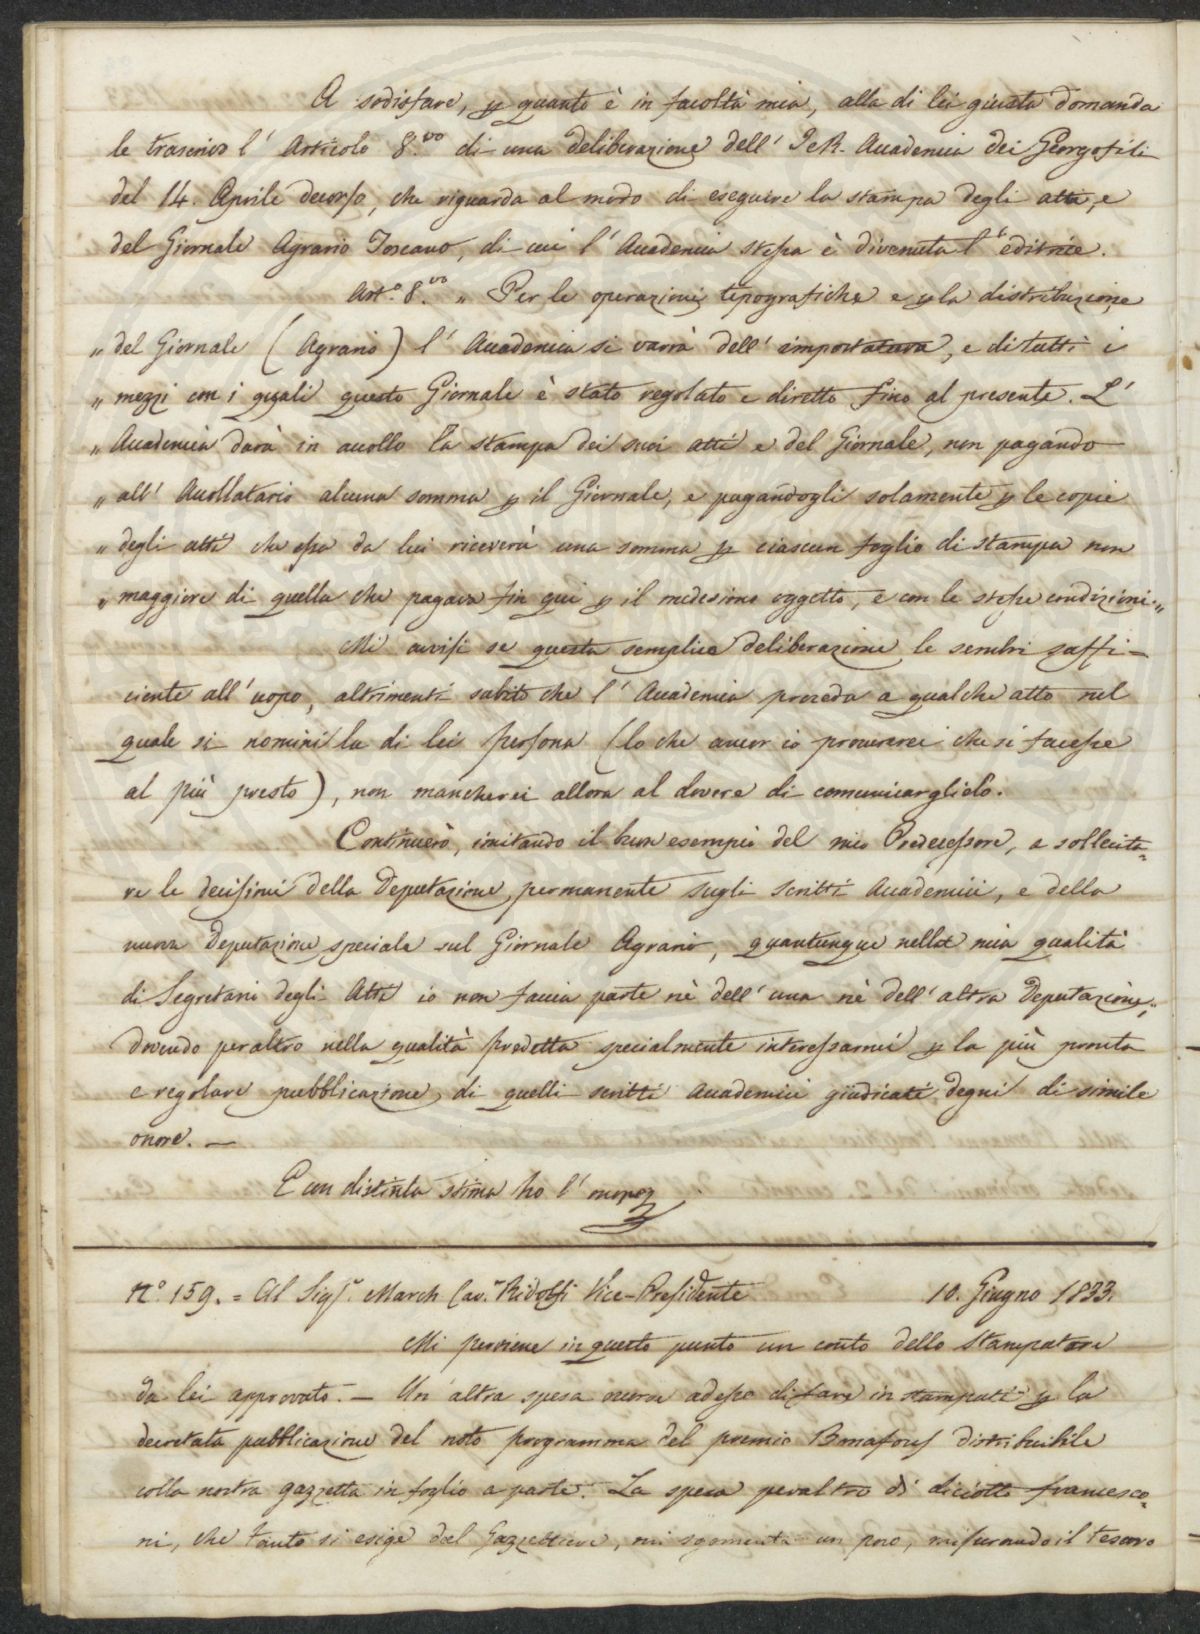 A sodisfare, p quanto è in facoltà mia, alla di lei giusta domanda
le trascrivo l' Articolo 8.vo di una deliberazione dell' I e R. Accademia dei Georgofili
del 14. Aprile decorso, che riguarda al modo di eseguire la stampa degli atti, e
del Giornale Agrario Toscano, di cui l' Accademia stessa è divenuta l' editrice.
Art.o 8.vo „ Per le operazioni tipografiche e p la distribuzione
„ del Giornale (Agrario) l' Accademia si varrà dell' impostatura, e di tutti i
„ mezzi con i quali questo Giornale è stato regolato e diretto fino al presente. L'
„ Accademia darà in accollo la stampa dei suoi atti e del Giornale, non pagando
„ all' Accollatario alcuna somma p il Giornale, e pagandogli solamente p le copie
„ degli atti che essa da lui riceverà una somma p ciascun foglio di stampa non
„ maggiore di quella che pagava fin qui p il medesimo oggetto, e con le stesse condizioni „
Mi avvisi se questa semplice deliberazione le sembri suffi=
ciente all' uopo, altrimenti subito che l' Accademia proceda a qualche atto nel
quale si nomini la di lei persona (lo che ancor io procurerei che si facesse
al più presto), non mancherei allora al dovere di comunicarglielo.
Continuerò, imitando il buon esempio del mio Predecessore, a sollecita=
re le decisioni della Deputazione permanente sugli scritti Accademici, e della
nuova Deputazione speciale sul Giornale Agrario, quantunque nella mia qualità
di Segretario degli Atti io non faccia parte nè dell' una nè dell' altra Deputazione;
dovendo peraltro nella qualità predetta specialmente interessarmi p la più pronta
e regolare pubblicazione di quelli scritti Accademici giudicati degni di simile
onore. —
E con distinta stima ho l' onore
N.o 159. = Al Sigr. March Cav.r Ridolfi Vice-Presidente 10. Giugno 1833.
Mi perviene in questo punto un conto dello Stampatore
da lei approvato. — Un' altra spesa occorre adesso di fare in stampati p la
decretata pubblicazione del noto programma del premio Bonafous distribuibile
colla nostra gazzetta in foglio a parte. La spesa peraltro di diciotto francesco=
ni, che tanto si esige dal Gazzettiere, mi sgomenta un poco, misurando il tesoro